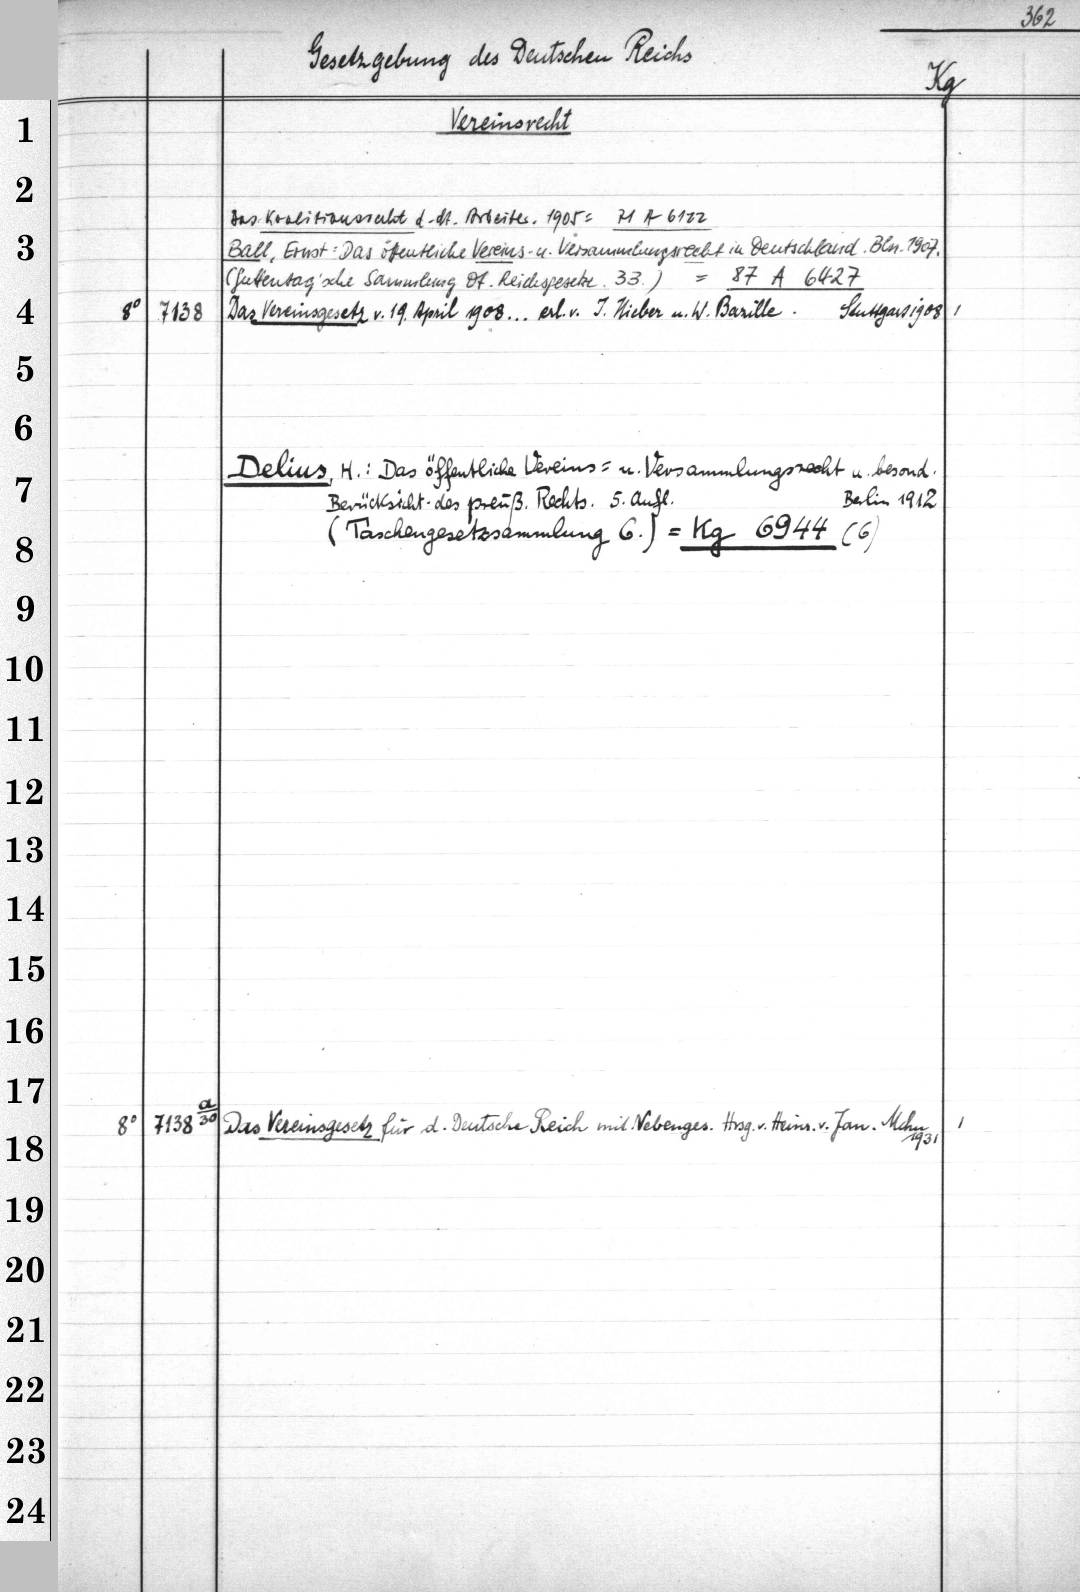 362
Gesetzgebung des Deutschen Reichs
Kg
1
Vereinsrecht
2
Das Koalitionsrecht d. dt. Arbeiter. 1905 = 71 A 6122
3
Ball, Ernst: Das öffentliche Vereins- u. Versammlungsrecht in Deutschland. Bln. 1907.
(Guttentag'sche Sammlung Dt. Reichsgesetze. 33.) = 87 A 6427
4 8° 7138 Das Vereinsgesetz v. 19. April 1908... erl. v. J. Hieber u. W. Bazille. Stuttgart 1908 1
5
6
Delius, H.: Das öffentliche Vereins= u. Versammlungsrecht u. besond.
7
Berücksicht. des preuß. Rechts. 5. Aufl. Berlin 1912
(Taschengesetzsammlung 6.) = Kg 6944 (6)
8
9
10
11
12
13
14
15
16
17
8° 7138 a/30 Das Vereinsgesetz für d. Deutsche Reich mit Nebenges. Hrsg. v. Heinr. v. Jan. Mchn 1931 1
18
19
20
21
22
23
24